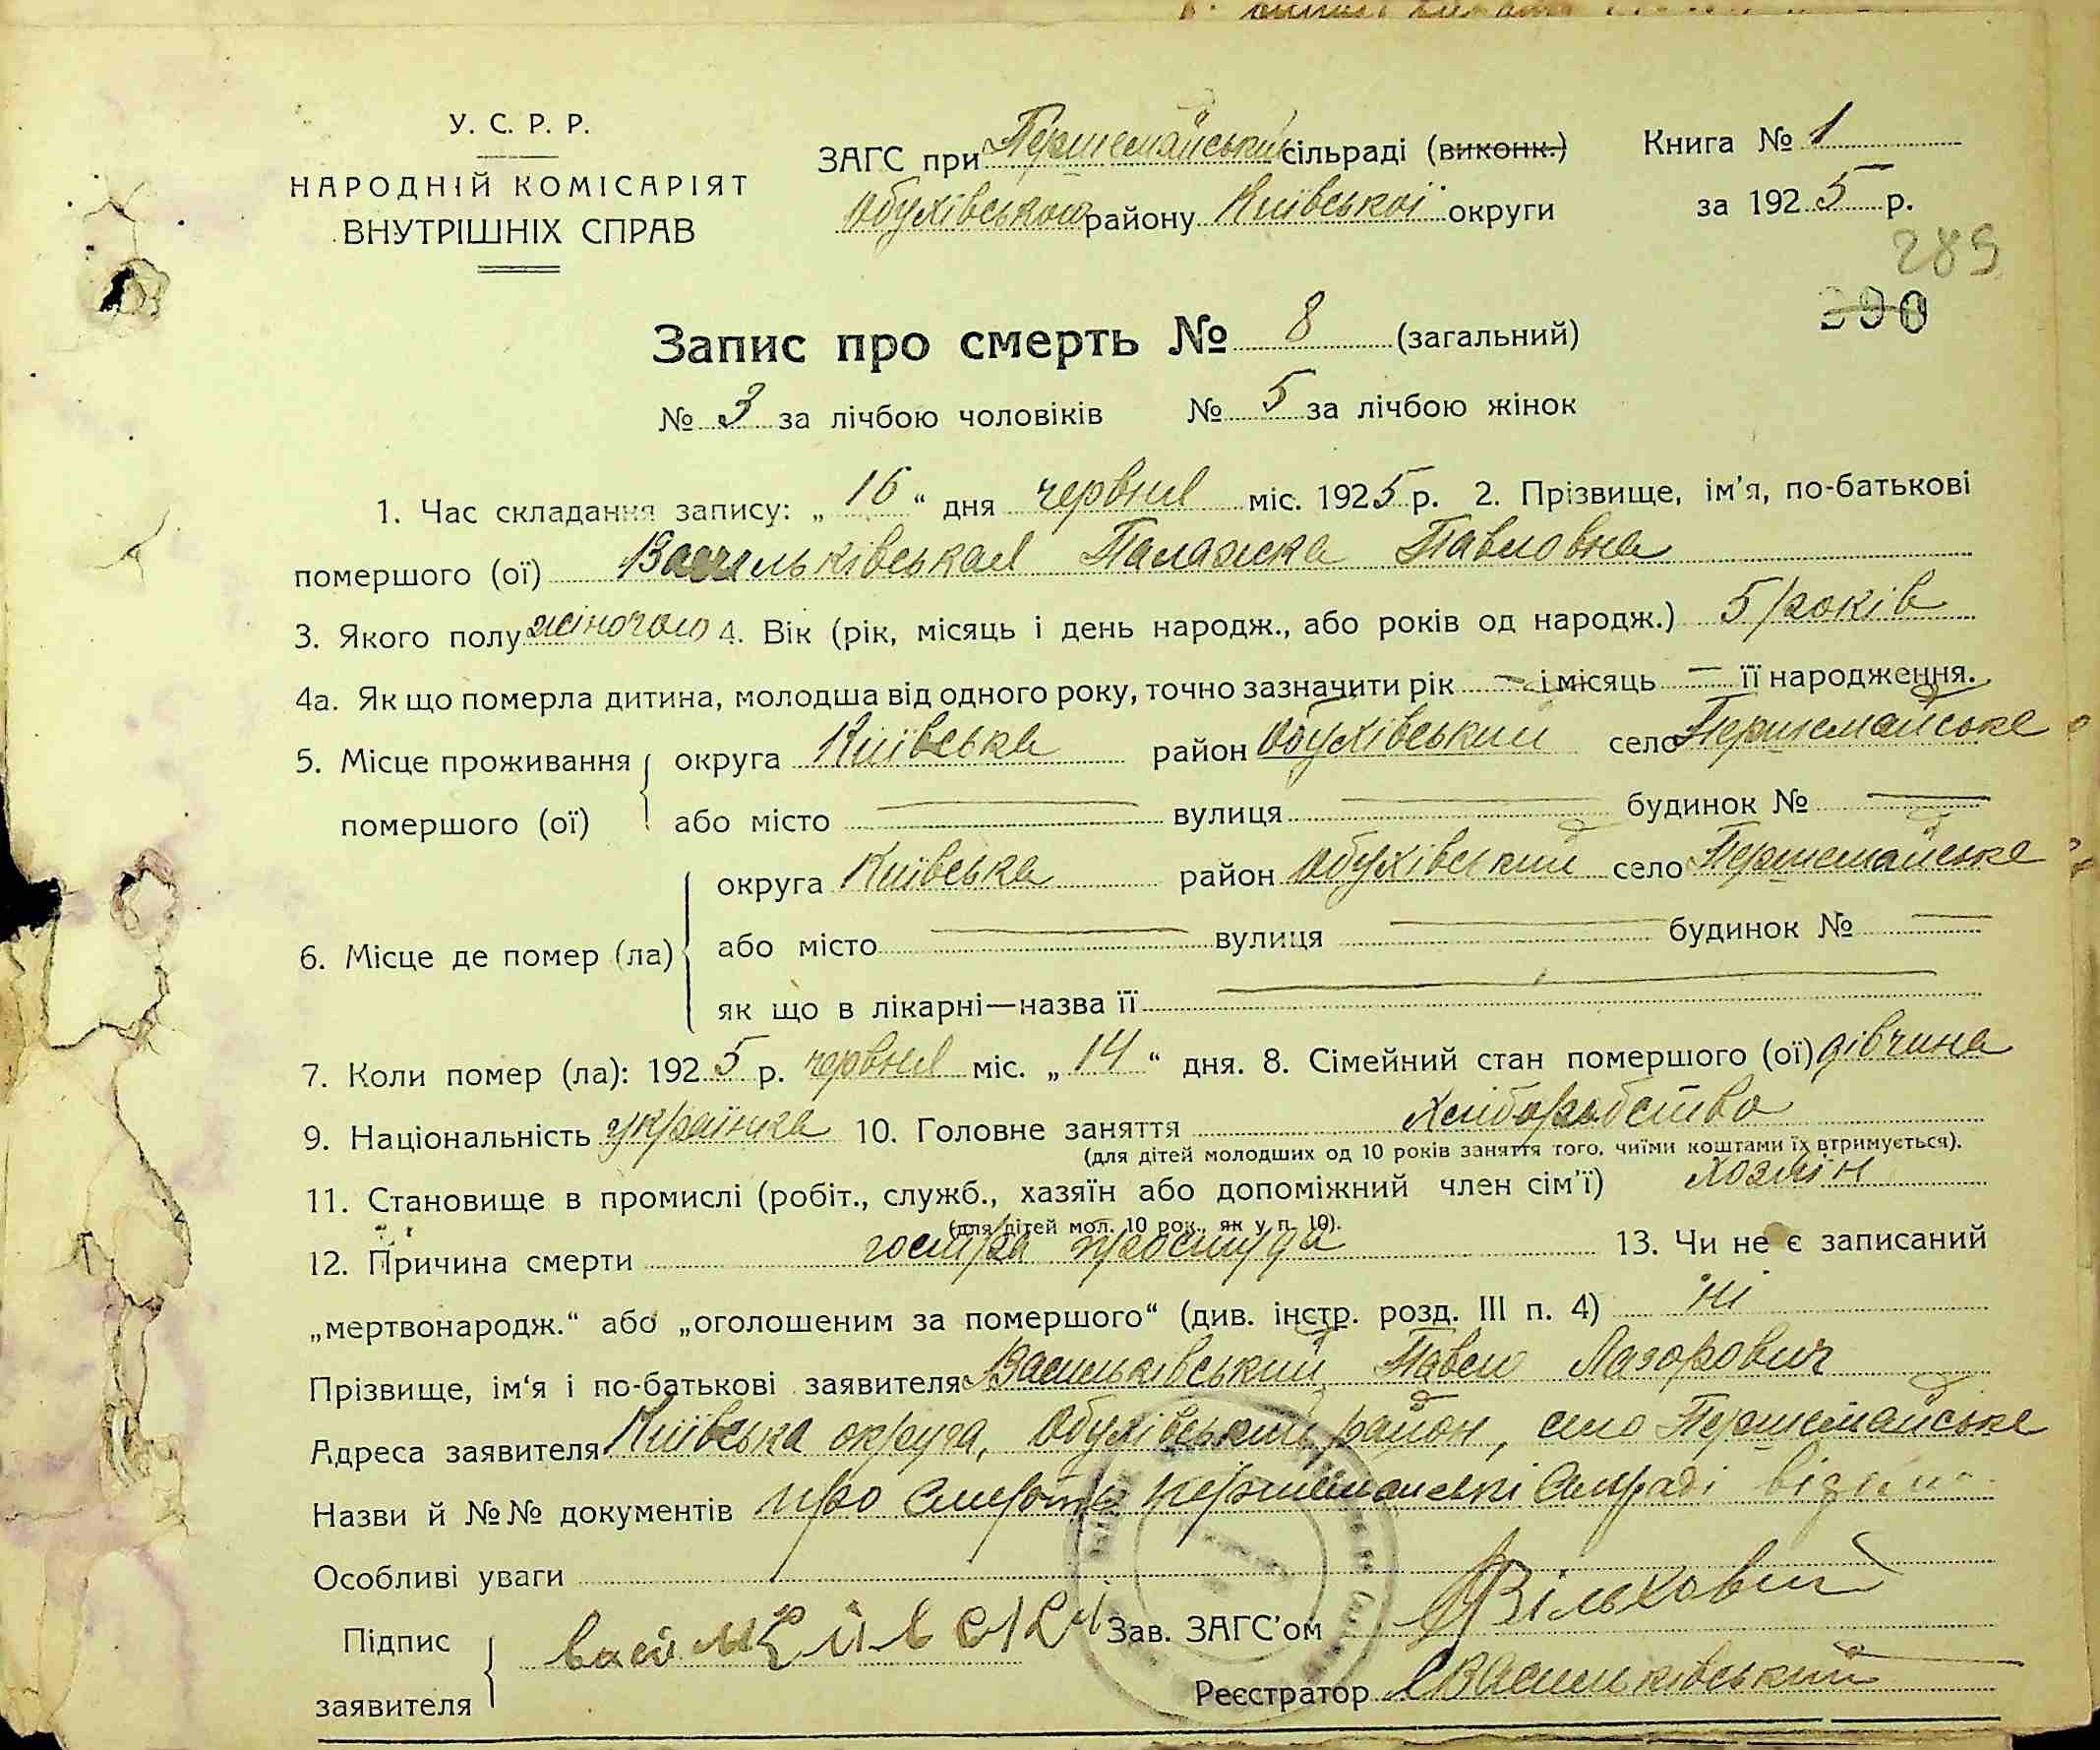 У. С. Р. Р.
НАРОДНІЙ КОМІСАРІЯТ
ВНУТРІШНІХ СПРАВ
ЗАГС при Першемайській сільраді (виконк.)
Обухівського району Київської округи
Книга № 1
за 1925 р.
289
390
Запис про смерть № 8 (загальний)
№ 3 за лічбою чоловіків № 5 за лічбою жінок
1. Час складання запису: „16“ дня червня міс. 1925 р. 2. Прізвище, ім'я, по-батькові
помершого (ої) Васильківськая Палажка Павловна
3. Якого полу жіночого 4. Вік (рік, місяць і день народж., або років од народж.) 5 років
4а. Як що померла дитина, молодша від одного року, точно зазначити рік — і місяць — її народження.
5. Місце проживання округа Київська район Обухівський село Першемайське
помершого (ої) або місто — вулиця — будинок № —
округа Київська район Обухівський село Першемайське
6. Місце де помер (ла) або місто — вулиця — будинок № —
як що в лікарні—назва її —
7. Коли помер (ла): 1925 р. червня міс. „14“ дня. 8. Сімейний стан помершого (ої) дівчина
9. Національність українка 10. Головне заняття хліборобство
(для дітей молодших од 10 років заняття того, чиїми коштами їх втримується).
11. Становище в промислі (робіт., служб., хазяїн або допоміжний член сім'ї) хозяїн
(для дітей мол. 10 рок., як у п. 10).
12. Причина смерти гостра простуда 13. Чи не є записаний
„мертвонародж.“ або „оголошеним за помершого“ (див. інстр. розд. III п. 4) ні
Прізвище, ім'я і по-батькові заявителя Васильківський Павло Лазорович
Адреса заявителя Київська округа, Обухівський район, село Першемайське
Назви й №№ документів про смерть
Особливі уваги
Підпис
заявителя
Зав. ЗАГС'ом Вільховий
Реєстратор Васильківський